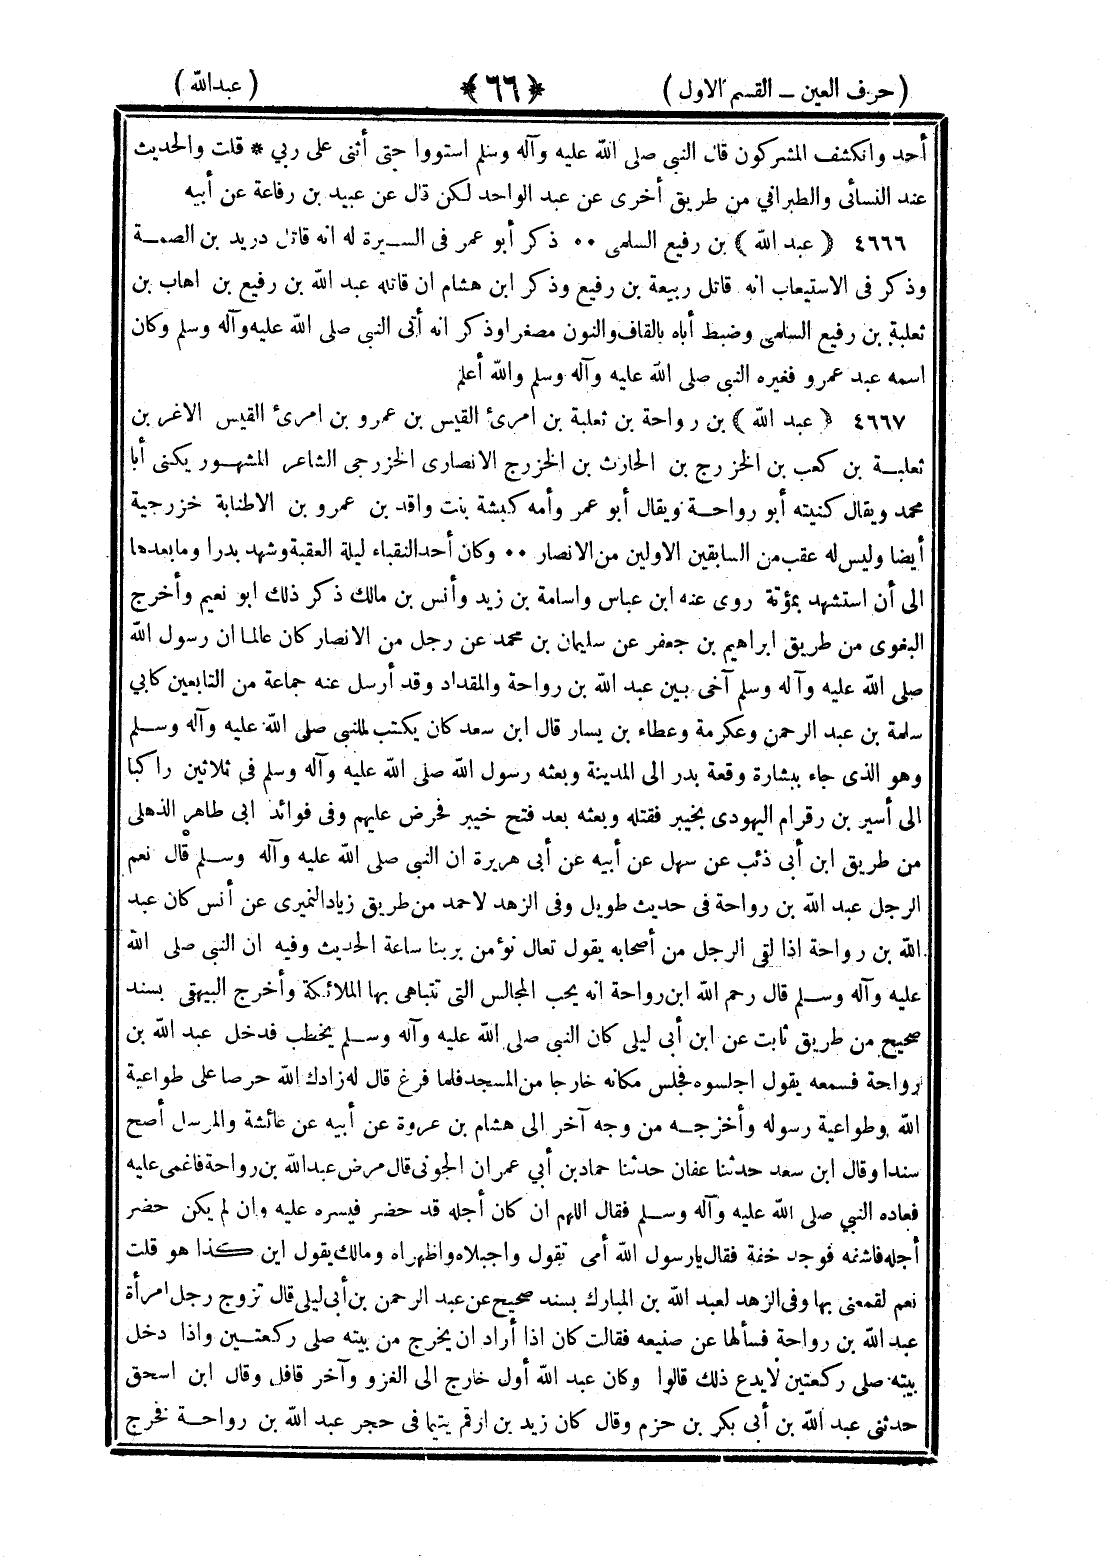 (حرف العين ــ القسم الاول) ﴿٦٦﴾ (عبدالله)
أحد وانكشف المشركون قال النبي صلى الله عليه وآله وسلم استووا حتى أثنى على ربي * قلت والحديث
عند النسائى والطبراني من طريق أخرى عن عبد الواحد لكن قال عن عبيد بن رفاعة عن أبيه
٤٦٦٦ ﴿ عبد الله ﴾ بن رفيع السلمى ٠٠ ذكر أبو عمر فى السيرة له انه قاتل دريد بن الصمة
وذكر فى الاستيعاب انه قاتل ربيعة بن رفيع وذكر ابن هشام ان قاتله عبد الله بن رفيع بن اهاب بن
ثعلبة بن رفيع السلمى وضبط أباه بالقاف والنون مصغرا وذكر انه أتى النبي صلى الله عليه وآله وسلم وكان
اسمه عبد عمرو فغيره النبي صلى الله عليه وآله وسلم والله أعلم
٤٦٦٧ ﴿ عبد الله ﴾ بن رواحة بن ثعلبة بن امرئ القيس بن عمرو بن امرئ القيس الاغر بن
ثعلبة بن كعب بن الخزرج بن الحارث بن الخزرج الانصارى الخزرجى الشاعر المشهور يكنى أبا
محمد ويقال كنيته أبو رواحة ويقال أبو عمر وأمه كبشة بنت واقد بن عمرو بن الاطنابة خزرجية
أيضا وليس له عقب من السابقين الاولين من الانصار ٠٠ وكان أحد النقباء ليلة العقبة وشهد بدرا وما بعدها
الى أن استشهد بمؤتة روى عنه ابن عباس واسامة بن زيد وأنس بن مالك ذكر ذلك ابو نعيم وأخرج
البغوى من طريق ابراهيم بن جعفر عن سليمان بن محمد عن رجل من الانصار كان عالما ان رسول الله
صلى الله عليه وآله وسلم آخى بين عبد الله بن رواحة والمقداد وقد أرسل عنه جماعة من التابعين كابي
سلمة بن عبد الرحمن وعكرمة وعطاء بن يسار قال ابن سعد كان يكتب للنبي صلى الله عليه وآله وسلم
وهو الذى جاء ببشارة وقعة بدر الى المدينة وبعثه رسول الله صلى الله عليه وآله وسلم في ثلاثين راكبا
الى أسير بن رقرام اليهودى بخيبر فقتله وبعثه بعد فتح خيبر فخرص عليهم وفى فوائد ابى طاهر الذهلى
من طريق ابن أبى ذئب عن سهل عن أبيه عن أبى هريرة ان النبي صلى الله عليه وآله وسلم قال نعم
الرجل عبد الله بن رواحة فى حديث طويل وفى الزهد لاحمد من طريق زياد النميرى عن أنس كان عبد
الله بن رواحة اذا لقى الرجل من أصحابه يقول تعال نؤمن بربنا ساعة الحديث وفيه ان النبي صلى الله
عليه وآله وسلم قال رحم الله ابن رواحة انه يحب المجالس التى تتباهى بها الملائكة وأخرج البيهقى بسند
صحيح من طريق ثابت عن ابن أبى ليلى كان النبي صلى الله عليه وآله وسلم يخطب فدخل عبد الله بن
رواحة فسمعه يقول اجلسوه فجلس مكانه خارجا من المسجد فلما فرغ قال له زادك الله حرصا على طواعية
الله وطواعية رسوله وأخرجه من وجه آخر الى هشام بن عروة عن أبيه عن عائشة والمرسل أصح
سندا وقال ابن سعد حدثنا عفان حدثنا حماد بن أبي عمران الجونى قال مرض عبد الله بن رواحة فاغمى عليه
فعاده النبي صلى الله عليه وآله وسلم فقال اللهم ان كان أجله قد حضر فيسره عليه وان لم يكن حضر
أجله فاشفه فوجد خفة فقال يارسول الله أمى تقول واجبلاه واظهراه ومالك يقول اين كذا هو قلت
نعم لقمعنى بها وفى الزهد لعبد الله بن المبارك بسند صحيح عن عبد الرحمن بن أبى ليلى قال تزوج رجل امرأة
عبد الله بن رواحة فسألها عن صنيعه فقالت كان اذا أراد ان يخرج من بيته صلى ركعتين واذا دخل
بيته صلى ركعتين لايدع ذلك قالوا وكان عبد الله أول خارج الى الغزو وآخر قافل وقال ابن اسحق
حدثنى عبد الله بن أبى بكر بن حزم وقال كان زيد بن ارقم يتيما فى حجر عبد الله بن رواحة فخرج